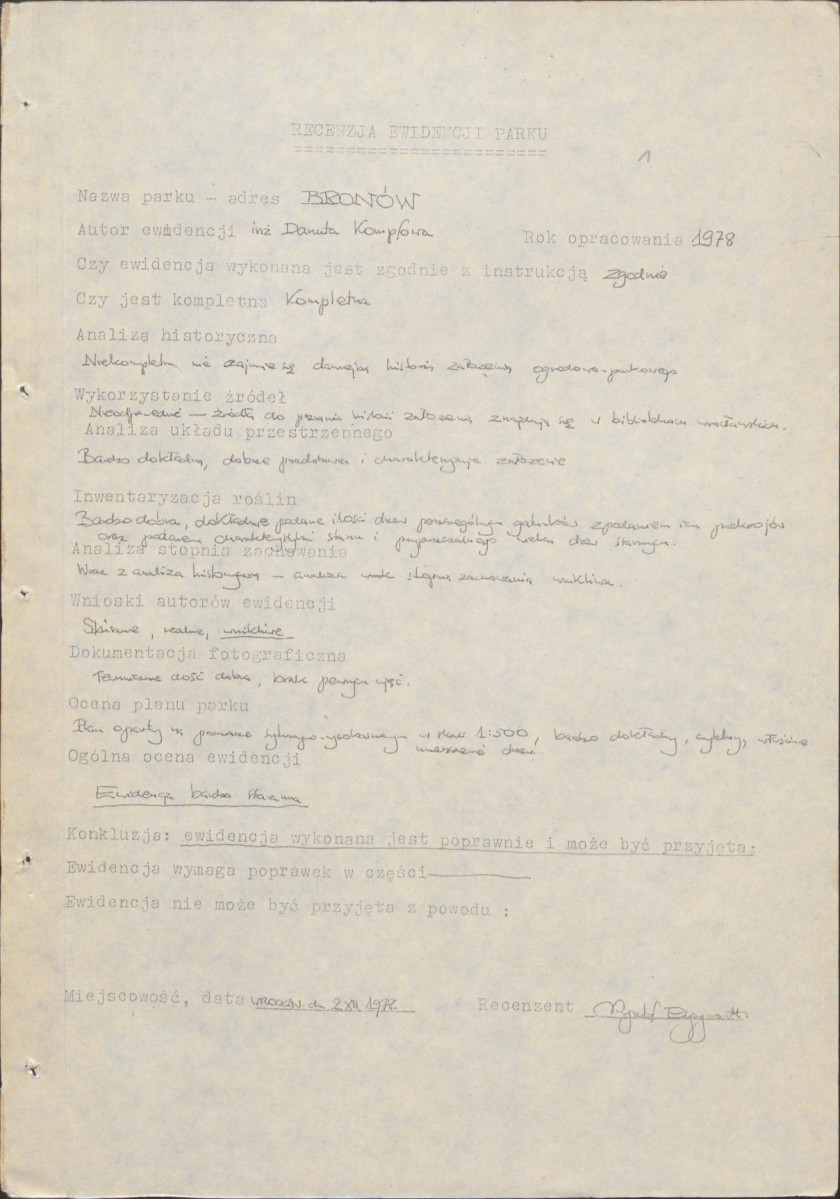 RECENZJA EWIDENCJI PARKU
1
Nazwa parku - adres BRONÓW
Autor ewidencji inż Danuta Rok opracowania 1978
Czy ewidencja wykonana jest zgodnie z instrukcją zgodnie
Czy jest kompletna Kompletna
Analiza historyczna
Niekompletna nie zajmuje się historią założenia ogrodowo-parkowego
Wykorzystanie źródeł
- źródła do historii założenia znajdują się w bibliotekach wrocławskich.
Analiza układu przestrzennego
Bardzo dokładna, dobrze przedstawia i charakteryzuje założenie
Inwentaryzacja roślin
Bardzo dobra, dokładnie podane ilości drzew poszczególnych gatunków z podaniem ich
oraz podaniem charakterystyki stanu i przypuszczalnego wieku drzew starszych.
Analiza stopnia zachowania
Wraz z analizą historyczną - analiza wnikliwa.
Wnioski autorów ewidencji
Słuszne, realne, wnikliwe
Dokumentacja fotograficzna
dość dobra, brak pewnych ujęć.
Ocena planu parku
Plan oparty na pomiarze sytuacyjno-wysokościowym w skali 1:500, bardzo dokładny, czytelny, właściwe
Ogólna ocena ewidencji
Ewidencja bardzo staranna
Konkluzja: ewidencja wykonana jest poprawnie i może być przyjęta:
Ewidencja wymaga poprawek w części
Ewidencja nie może być przyjęta z powodu :
Miejscowość, data Wrocław dn 2 XII 1978 Recenzent